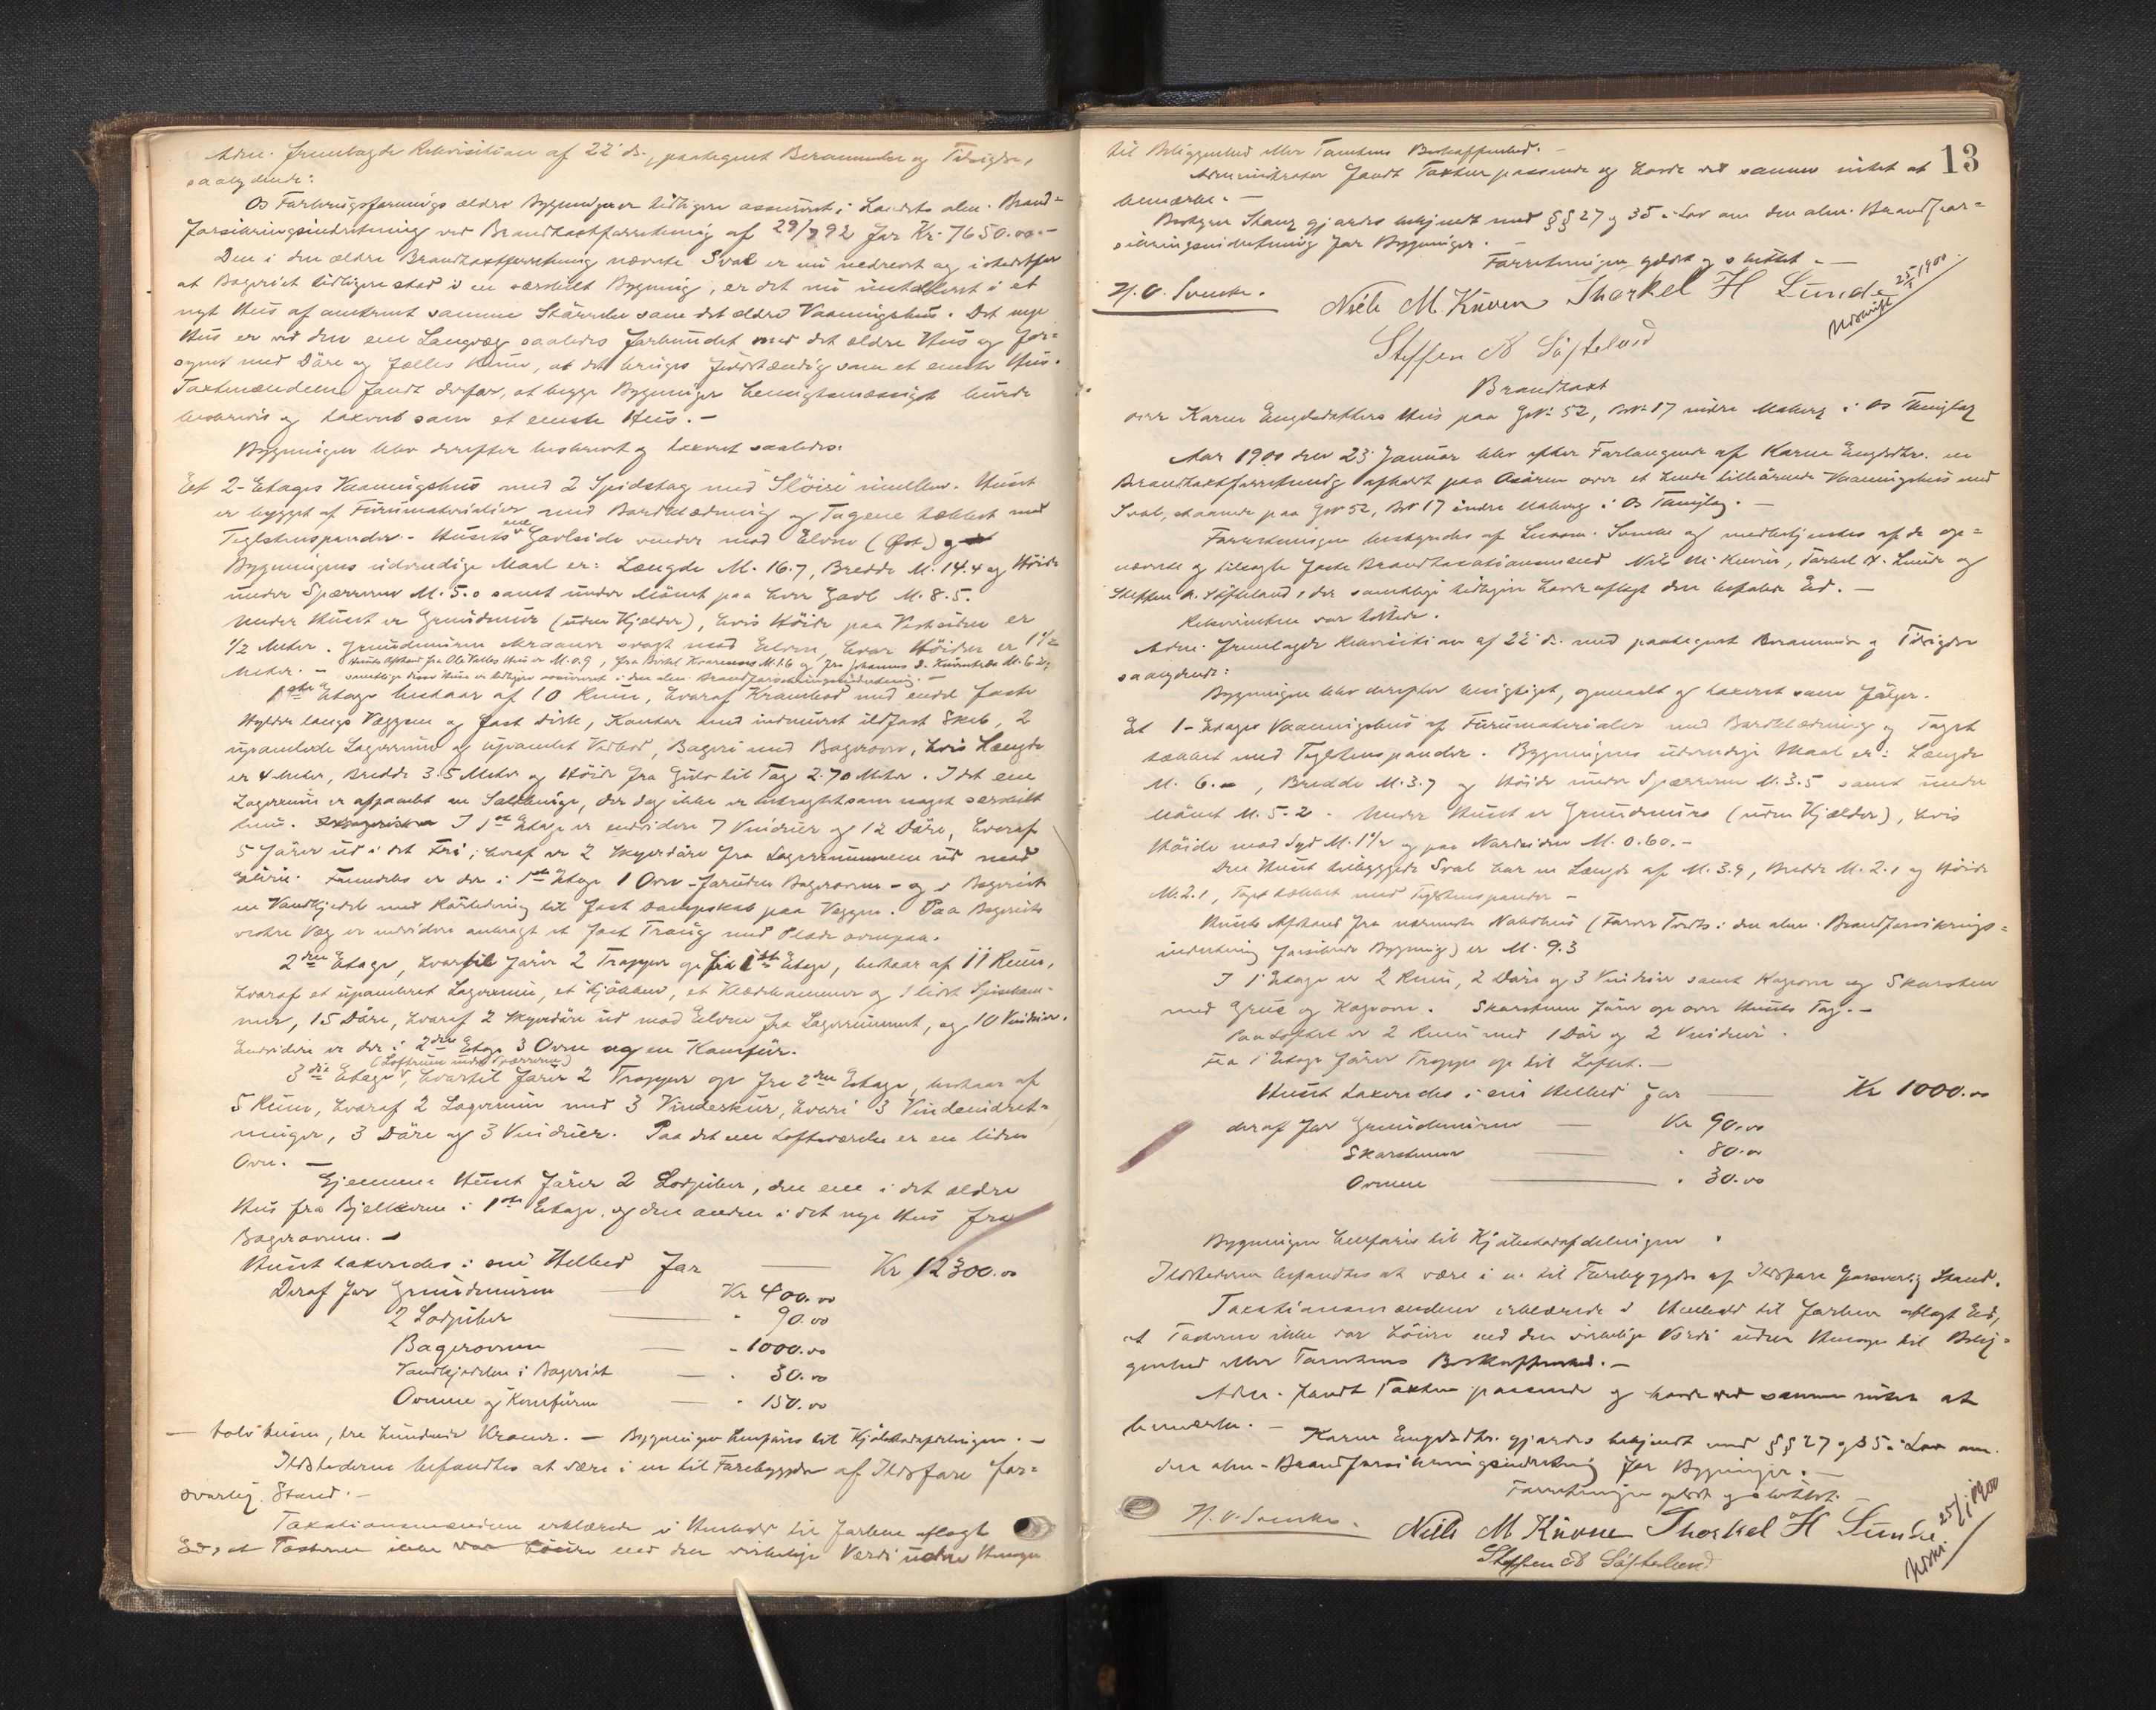 Adm. fremlagde Rekvisition af 22 ds., paategnet Berammelse og Tilsigelse,
saalydende:
Os Forbrugsforenings ældre Bygninger er tidligere assureret i Landets alm. Brand=
forsikringsindretning ved Brandtaxtforretning af 29/3 92 for Kr. 7650.00.-
Den i den ældre Brandtaxtforretning nævnte Sval er nu nedrevet og istedetfor
at Bageriet tidligere stod i en særskilt Bygning, er det nu installeret i et
nyt Hus af omtrent samme Størrelse som det ældre Vaaningshus. Det nye
Hus er ved den ene Langvæg saaledes forbundet med det ældre Hus og for=
synet med Døre og fælles Rum, at det bruges fuldstændig som et eneste Hus.
Taxtmændene fandt derfor, at begge Bygninger hensigtsmæssigst burde
beskrives og taxeres som et eneste Hus. -
Bygningen blev derefter beskrevet og taxeret saaledes:
Et 2-Etages Vaaningshus med 2 Spidstag med Slöire imellem. Huset
er bygget af Furumaterialier med Bordklædning og Tagene tækket med
Teglstenspander. - Husets ene Gavlside vender mod Elven (Øst.)
Bygningens udvendige Maal er: Længde M. 16.7, Bredde M. 14.4 og Höide
under Sperrerne M. 5.0 samt under Mönet paa hver Gavl M. 8.5.
Under Huset er Grundmur (uden Kjelder), hvis Höide paa Vestsiden er
1/2 Meter. Grundmuren skraaner svagt mod Elven, hvor Höiden er 1 1/2
Meter. - Husets Afstand fra Ole Valles Hus er M. 0.9, fra M. 1.6 og fra Johannes
samtlige disse Huse er tidligere assureret i den alm. Brandforsikringsindretning. -
1ste Etage bestaar af 10 Rum, hvoraf Krambod med endel faste
Hylder langs Væggene og fast Disk, Kontor med indmuret ildfast Skab, 2
upanelede Lagerrum og upanelet Vedbod, Bageri med Bagerovn, hvis Længde
er 4 Meter, Bredde 3.5 Meter og Höide fra Gulv til Tag 2.70 Meter. I det ene
Lagerrum er afpanelet en Saltbinge, der dog ikke er betragtet som noget særskilt
Rum. I 1ste Etage er endvidere 7 Vinduer og 12 Döre, hvoraf
5 förer ud i det Fri; heraf er 2 Skyvedöre fra Lagerrummene ud mod
Elven. Fremdeles er der i 1ste Etage 1 Ovn - foruden Bagerovnen - og i Bageriet
en Vandkjedel med Rörledning til fast Dampskab paa Væggen. Paa Bageriets
vestre Væg er endvidere anbragt et fast Traug med Plade ovenpaa.
2den Etage, hvortil förer 2 Trapper op fra 1ste Etage, bestaar af 11 Rum,
hvoraf et upaneleret Lagerrum, et Kjökken, et Klædekammer og 1 lidet Spisekam=
mer, 15 Döre, hvoraf 2 Skyvedöre ud mod Elven fra Lagerrummet, og 10 Vinduer.
Endvidere er der i 2den Etage 3 Ovne og en Komfur.
(Loftrum under Sperrerne)
3die Etage, hvortil förer 2 Trapper op fra 2den Etage, bestaar af
5 Rum, hvoraf 2 Lagerrum med 3 Vindeskur, hvori 3 Vindeindret=
ninger, 3 Döre og 3 Vinduer. Paa det ene Loftsværelse er en liden
Ovn. -
Gjennem Huset förer 2 Lodpiber, den ene i det ældre
Hus fra Bjelkerne i 1ste Etage, og den anden i det nye Hus fra
Bagerovnen. -
Huset taxeredes i sin Helhed for Kr 12300.00
Deraf for Grundmuren Kr 400.00
2 Lodpiber " 90.00
Bagerovnen " 1000.00
Vandkjedelen i Bageriet " 30.00
Ovnene og Komfuren " 150.00
- tolv tusen, tre hundrede Kroner. - Bygningen henføres til Kjöbstadafdelingen. -
Ildstederne befandtes at være i en til Forebyggelse af Ildsfare for=
svarlig Stand. -
Taxationsmændene erklærede i Henhold til forhen aflagt
Ed, at Taxterne ikke var höiere end den virkelige Værdi uden Hensyn
13
til Beliggenhed eller Tomtens Beskaffenhed. -
Administrator fandt Taxten passende og havde ved samme intet at
bemærke. -
Bestyrer Stang gjordes bekjendt med §§ 27 og 35 i Lov om den alm. Brandfor=
sikringsindretning for Bygninger. -
Forretningen oplæst og sluttet. -
N. O. Svenke. Niels M. Kuven Thorkel H Lunde
Steffen A Söfteland
Udskrift 25/1 1900.
Brandtaxt
over Karen Engelsdatters Hus paa GNo 52, BNo 17 indre Moberg i Os Thinglag
Aar 1900 den 23 Januar blev efter Forlangende af Karen Engelsdtr. en
Brandtaxtforretning afholdt paa Osören over et hende tilhörende Vaaningshus med
Sval, staaende paa GNo 52, BNo 17 indre Moberg i Os Thinglag. -
Forretningen bestyredes af Lensm. Svenke og medbetjentes af de op=
nævnte og tilsagte faste Brandtaxationsmænd Nils M. Kuven, Torkel H. Lunde og
Steffen A. Söfteland, der samtlige tidligere havde aflagt den befalede Ed. -
Rekvirenten var tilstede.
Adm. fremlagde Rekvisition af 22 ds. med paategnet Berammelse og Tilsigelse
saalydende:
Bygningen blev derefter besigtiget, opmaalt og taxeret som fölger.
Et 1-Etages Vaaningshus af Furumaterialer med Bordklædning og Taget
tækket med Teglstenspander. Bygningens udvendige Maal er: Længde
M. 6.-, Bredde M. 3.7 og Höide under Sperrerne M. 3.5 samt under
Mönet M. 5.2. Under Huset er Grundmur (uden Kjælder), hvis
Höide mod Syd M. 1 1/2 og paa Nordsiden M. 0.60. -
Den Huset tilbyggede Sval har en Længde af M. 3.9, Bredde M. 2.1 og Höide
M. 2.1, Taget tækket med Teglstenspander -
Husets Afstand fra nærmeste Nabohus ( i den alm. Brandforsikrings=
indretning forsikrede Bygning) er M. 9.3
I 1 Etage er 2 Rum, 2 Döre og 3 Vinduer samt Kogeovn og Skorsten
med Grue og Kogeovn. Skorstenen förer op over Husets Tag. -
Paa Loftet er 2 Rum med 1 Dör og 2 Vinduer.
Fra 1 Etage förer Trappe op til Loftet. -
Huset taxeredes i sin Helhed for Kr 1000.00
deraf for Grundmuren Kr 90.00
Skorstenen " 80.00
Ovnene " 30.00
Bygningen henföres til Kjöbstadafdelingen.
Ildstederne befandtes at være i en til Forebyggelse af Ildsfare forsvarlig Stand.
Taxationsmændene erklærede i Henhold til forhen aflagt Ed,
at Taxterne ikke var höiere end den virkelige Værdi uden Hensyn til Belig=
genhed eller Tomtens Beskaffenhed. -
Adm. fandt Taxten passende og havde ved samme intet at
bemærke. -
Karen Engelsdtr. gjordes bekjendt med §§ 27 og 35 i Lov om
den alm. Brandforsikringsindretning for Bygninger. -
Forretningen oplæst og sluttet. -
N. O. Svenke. Niels M Kuven Thorkel H Lunde
Steffen A Söfteland
Udskr. 25/1 1900